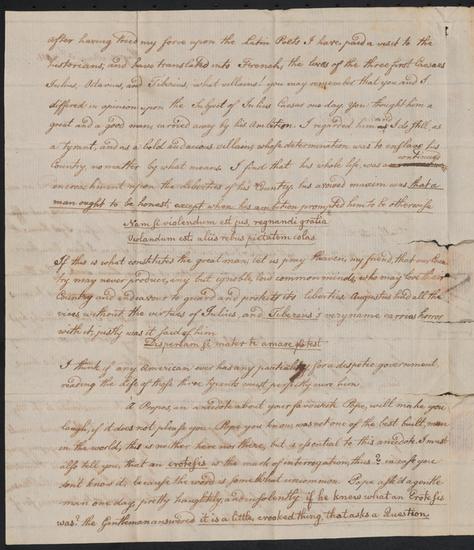 after having tried my force upon the Latin Poets I have, paid a visit to the
historians, and have translated into French, the lives of the three first Caesars
Julius, Octavius, and Tiberius, what villains! you may remember that you and I
differed in opinion upon the subject of Julius Caesar one day. You thought him a
great and a good man, carried away by his Ambition. I regarded him and as I do still, as
a tyrant, and as a bold audacious villain whose determination was to enslave his
Country, no matter by what means. I find that his whole life, was a continued
encroachment upon the liberties of his Country. his avowed maxim was that a
man ought to be honest, except when his ambition prompted him to be otherwise
Nam si violendum est jus, regnandi gratia
Violandum est: aliis rebus pietatem colas
If this is what constitutes the great man, let us pray Heaven, my friend, that our Coun
try may never produce, any but ignoble, low common minds, who may love their
Country and endeavour to guard and protect its liberties. Augustus had all the
vices without the virtues of Julius, and Tiberius's very name carries horror
with it. justly was it said of him.
Dispeream si mater te amare potest
I think if any American ever has any partiality for a despotic government
reading the Life of these three tyrants must perfectly cure him.
A Propos an anecdote about your favourite Pope, will make you
laugh, if it does not please you. Pope you know, was not one of the best built men
in the world, this is neither here nor there, but is essential to this anecdote. I must
also tell you, that an erotesis is the mark of interrogation, thus ? in case you
dont know it, because the word is somewhat uncommon. Pope ask'd a gentle
man one day, pretty haughtily, and insolently if he knew what an Erotesis
was? the Gentleman answered it is a little, crooked thing that asks a Question.